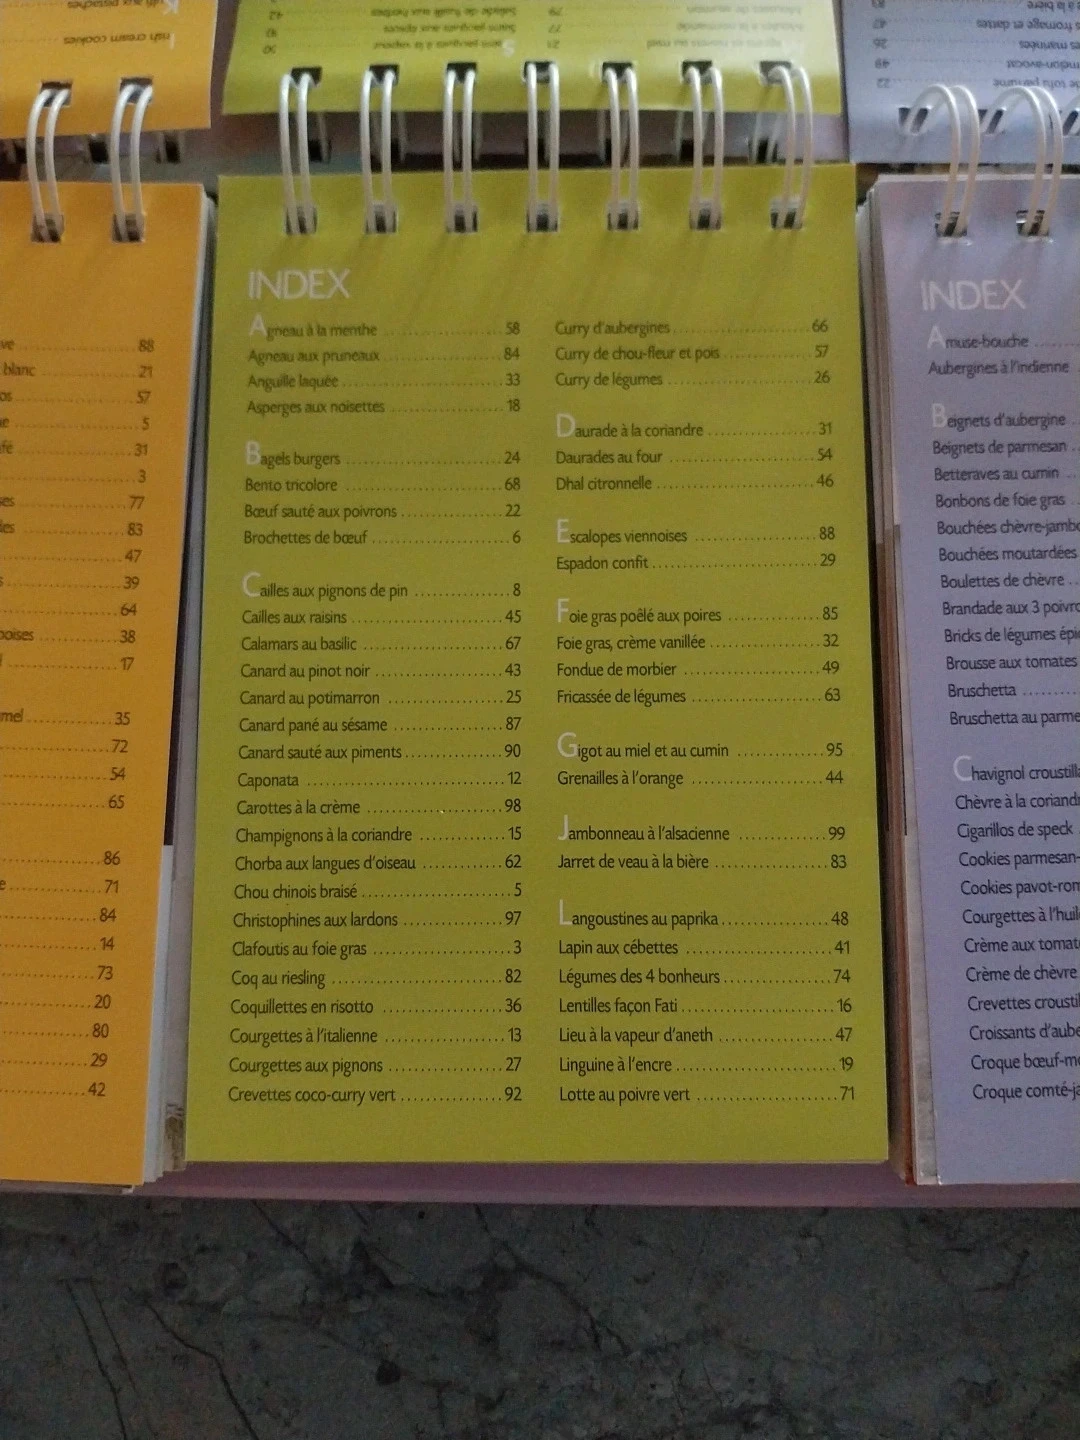 ish cream cookies
ve 88
blanc 21
os 57
e 5
afé 31
3
ses 77
des 83
47
s 39
64
boises 38
17
mel 35
72
54
65
86
e 71
84
14
73
20
80
29
42
INDEX
Agneau à la menthe 58
Agneau aux pruneaux 84
Anguille laquée 33
Asperges aux noisettes 18
Bagels burgers 24
Bento tricolore 68
Bœuf sauté aux poivrons 22
Brochettes de bœuf 6
Cailles aux pignons de pin 8
Cailles aux raisins 45
Calamars au basilic 67
Canard au pinot noir 43
Canard au potimarron 25
Canard pané au sésame 87
Canard sauté aux piments 90
Caponata 12
Carottes à la crème 98
Champignons à la coriandre 15
Chorba aux langues d'oiseau 62
Chou chinois braisé 5
Christophines aux lardons 97
Clafoutis au foie gras 3
Coq au riesling 82
Coquillettes en risotto 36
Courgettes à l'italienne 13
Courgettes aux pignons 27
Crevettes coco-curry vert 92
Curry d'aubergines 66
Curry de chou-fleur et pois 57
Curry de légumes 26
Daurade à la coriandre 31
Daurades au four 54
Dhal citronnelle 46
Escalopes viennoises 88
Espadon confit 29
Foie gras poêlé aux poires 85
Foie gras, crème vanillée 32
Fondue de morbier 49
Fricassée de légumes 63
Gigot au miel et au cumin 95
Grenailles à l'orange 44
Jambonneau à l'alsacienne 99
Jarret de veau à la bière 83
Langoustines au paprika 48
Lapin aux cébettes 41
Légumes des 4 bonheurs 74
Lentilles façon Fati 16
Lieu à la vapeur d'aneth 47
Linguine à l'encre 19
Lotte au poivre vert 71
INDEX
Amuse-bouche
Aubergines à l'indienne
Beignets d'aubergine
Beignets de parmesan
Betteraves au cumin
Bonbons de foie gras
Bouchées chèvre-jambo
Bouchées moutardées
Boulettes de chèvre
Brandade aux 3 poivro
Bricks de légumes épic
Brousse aux tomates
Bruschetta
Bruschetta au parme
Chavignol croustilla
Chèvre à la coriand
Cigarillos de speck
Cookies parmesan-
Cookies pavot-rom
Courgettes à l'huil
Crème aux tomat
Crème de chèvre
Crevettes crousti
Croissants d'aube
Croque bœuf-m
Croque comté-ja